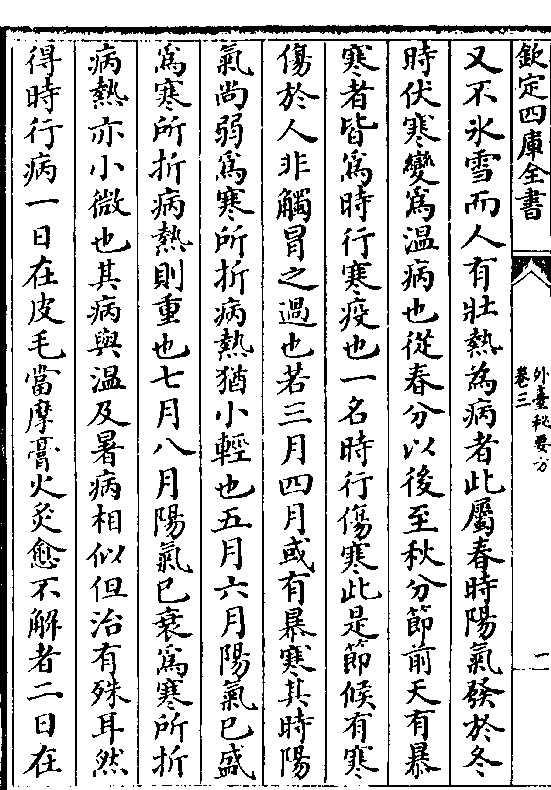 欽定四庫全書
外臺秘要方
卷三
一
又不氷雪而人有壯熱為病者此屬春時陽氣發於冬
時伏寒變為温病也從春分以後至秋分節前天有暴
寒者皆為時行寒疫也一名時行傷寒此是節候有寒
傷於人非觸冒之過也若三月四月或有暴寒其時陽
氣尚弱為寒所折病熱猶小輕也五月六月陽氣已盛
為寒所折病熱則重也七月八月陽氣已衰為寒所折
病熱亦小微也其病與温及暑病相似但治有殊耳然
得時行病一日在皮毛當摩膏火灸愈不解者二日在